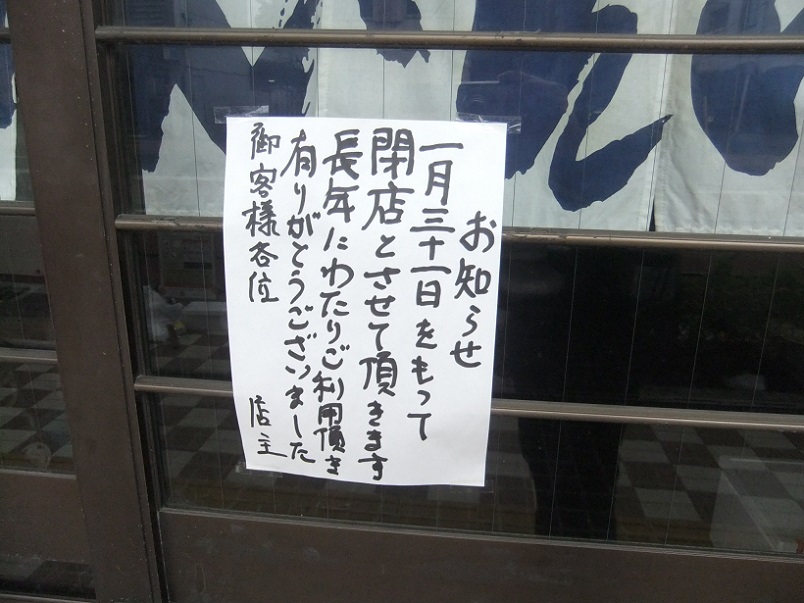 お知らせ
一月三十一日をもって
閉店とさせて頂きます
長年にわたりご利用頂き
有りがとうございました
御客様各位
店主